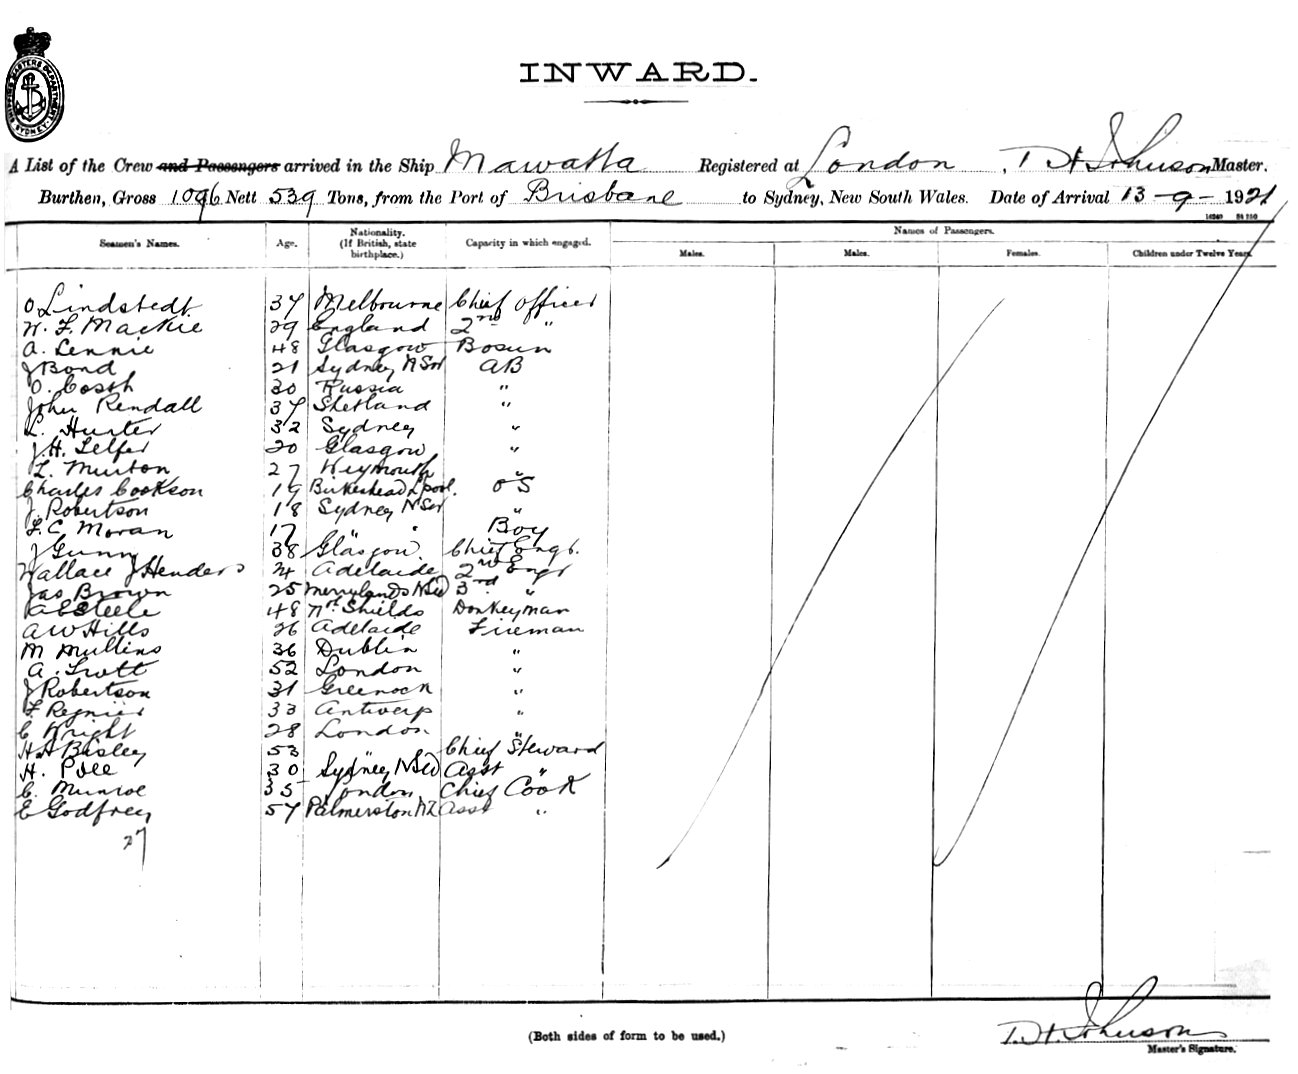 SHIPPING MASTERS DEPARTMENT SYDNEY
INWARD.
A List of the Crew and Passengers arrived in the Ship Mawatta Registered at London T. H. Johnson Master.
Burthen, Gross 1096 Nett 539 Tons, from the Port of Brisbane to Sydney, New South Wales. Date of Arrival 13-9-1921
Seamen's Names. Age. Nationality. (If British, state birthplace.) Capacity in which engaged. Names of Passengers.
Males. Males. Females. Children under Twelve Years.
O Lindstedt 37 Melbourne Chief Officer
W. F. Mackie 29 England 2nd "
A. Lennie 48 Glasgow Bosun
J Bond 21 Sydney NSW AB
O. Costh 30 Russia "
John Rendall 37 Shetland "
L. Hunter 32 Sydney "
J. H. Telfer 20 Glasgow "
L. Murton 27 Weymouth "
Charles Cookson 19 Birkenhead L'pool. OS
J. Robertson 18 Sydney NSW "
F. C Moran 17 " " Boy
J Gunny 38 Glasgow. Chief Engr.
Wallace J Henders 24 Adelaide 2nd Engr
Jas Brown 25 Merrylands NSW 3rd "
A E Steele 48 Nth Shields Donkeyman
A W Hills 26 Adelaide Fireman
M Mullins 36 Dublin "
A. Trott 52 London "
J Robertson 31 Greenock "
F. Regnier 33 Antwerp "
C Wright 28 London "
H A Bisley 53 " Chief Steward
H. Pile 30 Sydney NSW Asst "
C. Munroe 35 London Chief Cook
E Godfrey 57 Palmerston NZ Asst "
27
(Both sides of form to be used.)
T. H. Johnson
Master's Signature.